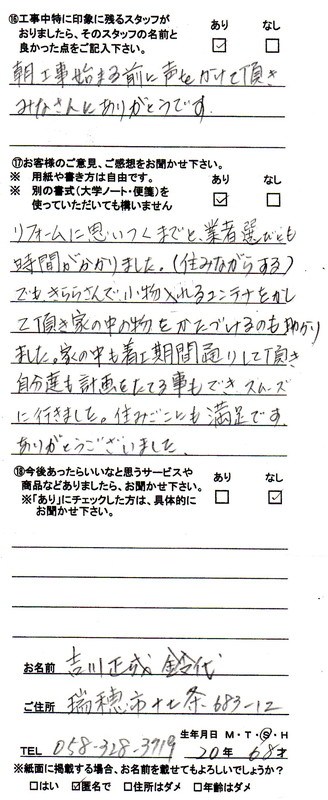 ⑯工事中特に印象に残るスタッフが
おりましたら、そのスタッフの名前と
良かった点をご記入下さい。
あり ☑ なし □
朝工事始まる前に声をかけて頂き
みなさんにありがとうです。
⑰お客様のご意見、ご感想をお聞かせ下さい。
※ 用紙や書き方は自由です。
※ 別の書式(大学ノート・便箋)を
使っていただいても構いません
あり ☑ なし □
リフォームに思いつくまでと、業者選びとも
時間がかかりました。(住みながらする)
でもきららさんで小物入れるコンテナをかし
て頂き家の中の物をかたづけるのも助かり
ました。家の中も着工期間通りして頂き
自分達も計画をたてる事もできスムーズ
に行きました。住みごこちも満足です。
ありがとうございました。
⑱今後あったらいいなと思うサービスや
商品などありましたら、お聞かせ下さい。
※「あり」にチェックした方は、具体的に
お聞かせ下さい。
あり □ なし ☑
お名前 吉川正成 鈴代
ご住所 瑞穂市十七条-683-12
生年月日 M・T・Ⓢ・H
TEL 058-328-3719 20年 68才
※紙面に掲載する場合、お名前を載せてもよろしいでしょうか?
□はい ☑匿名で □住所はダメ □年齢はダメ